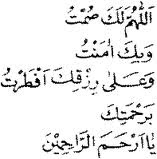 اَللّٰهُمَّ لَكَ صُمْتُ
وَبِكَ اٰمَنْتُ
وَعَلٰى رِزْقِكَ اَفْطَرْتُ
بِرَحْمَتِكَ
يَا اَرْحَمَ الرَّاحِمِيْنَ